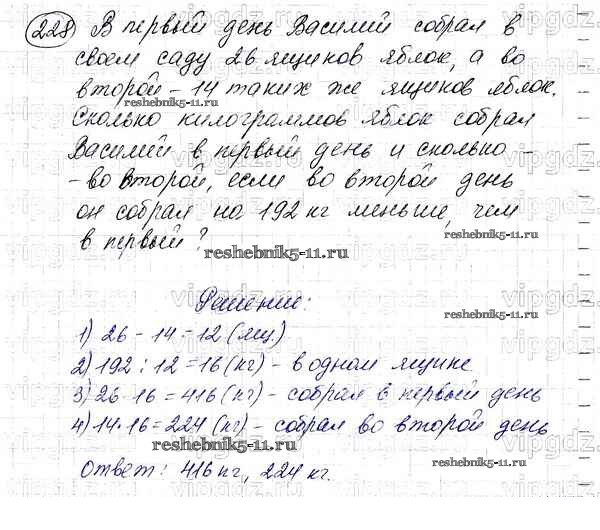 228 В первый день Василий собрал в
своем саду 26 ящиков яблок, а во
второй - 14 таких же ящиков яблок.
reshebnik5-11.ru
Сколько килограммов яблок собрал
Василий в первый день и сколько -
- во второй, если во второй день
он собрал на 192 кг меньше, чем
reshebnik5-11.ru
в первый?
reshebnik5-11.ru
Решение:
reshebnik5-11.ru
1) 26 - 14 = 12 (ящ.)
2) 192 : 12 = 16 (кг) - в одном ящике
3) 26·16 = 416 (кг) - собрал в первый день
4) 14·16 = 224 (кг) - собрал во второй день
reshebnik5-11.ru
reshebnik5-11.ru
Ответ: 416 кг, 224 кг.